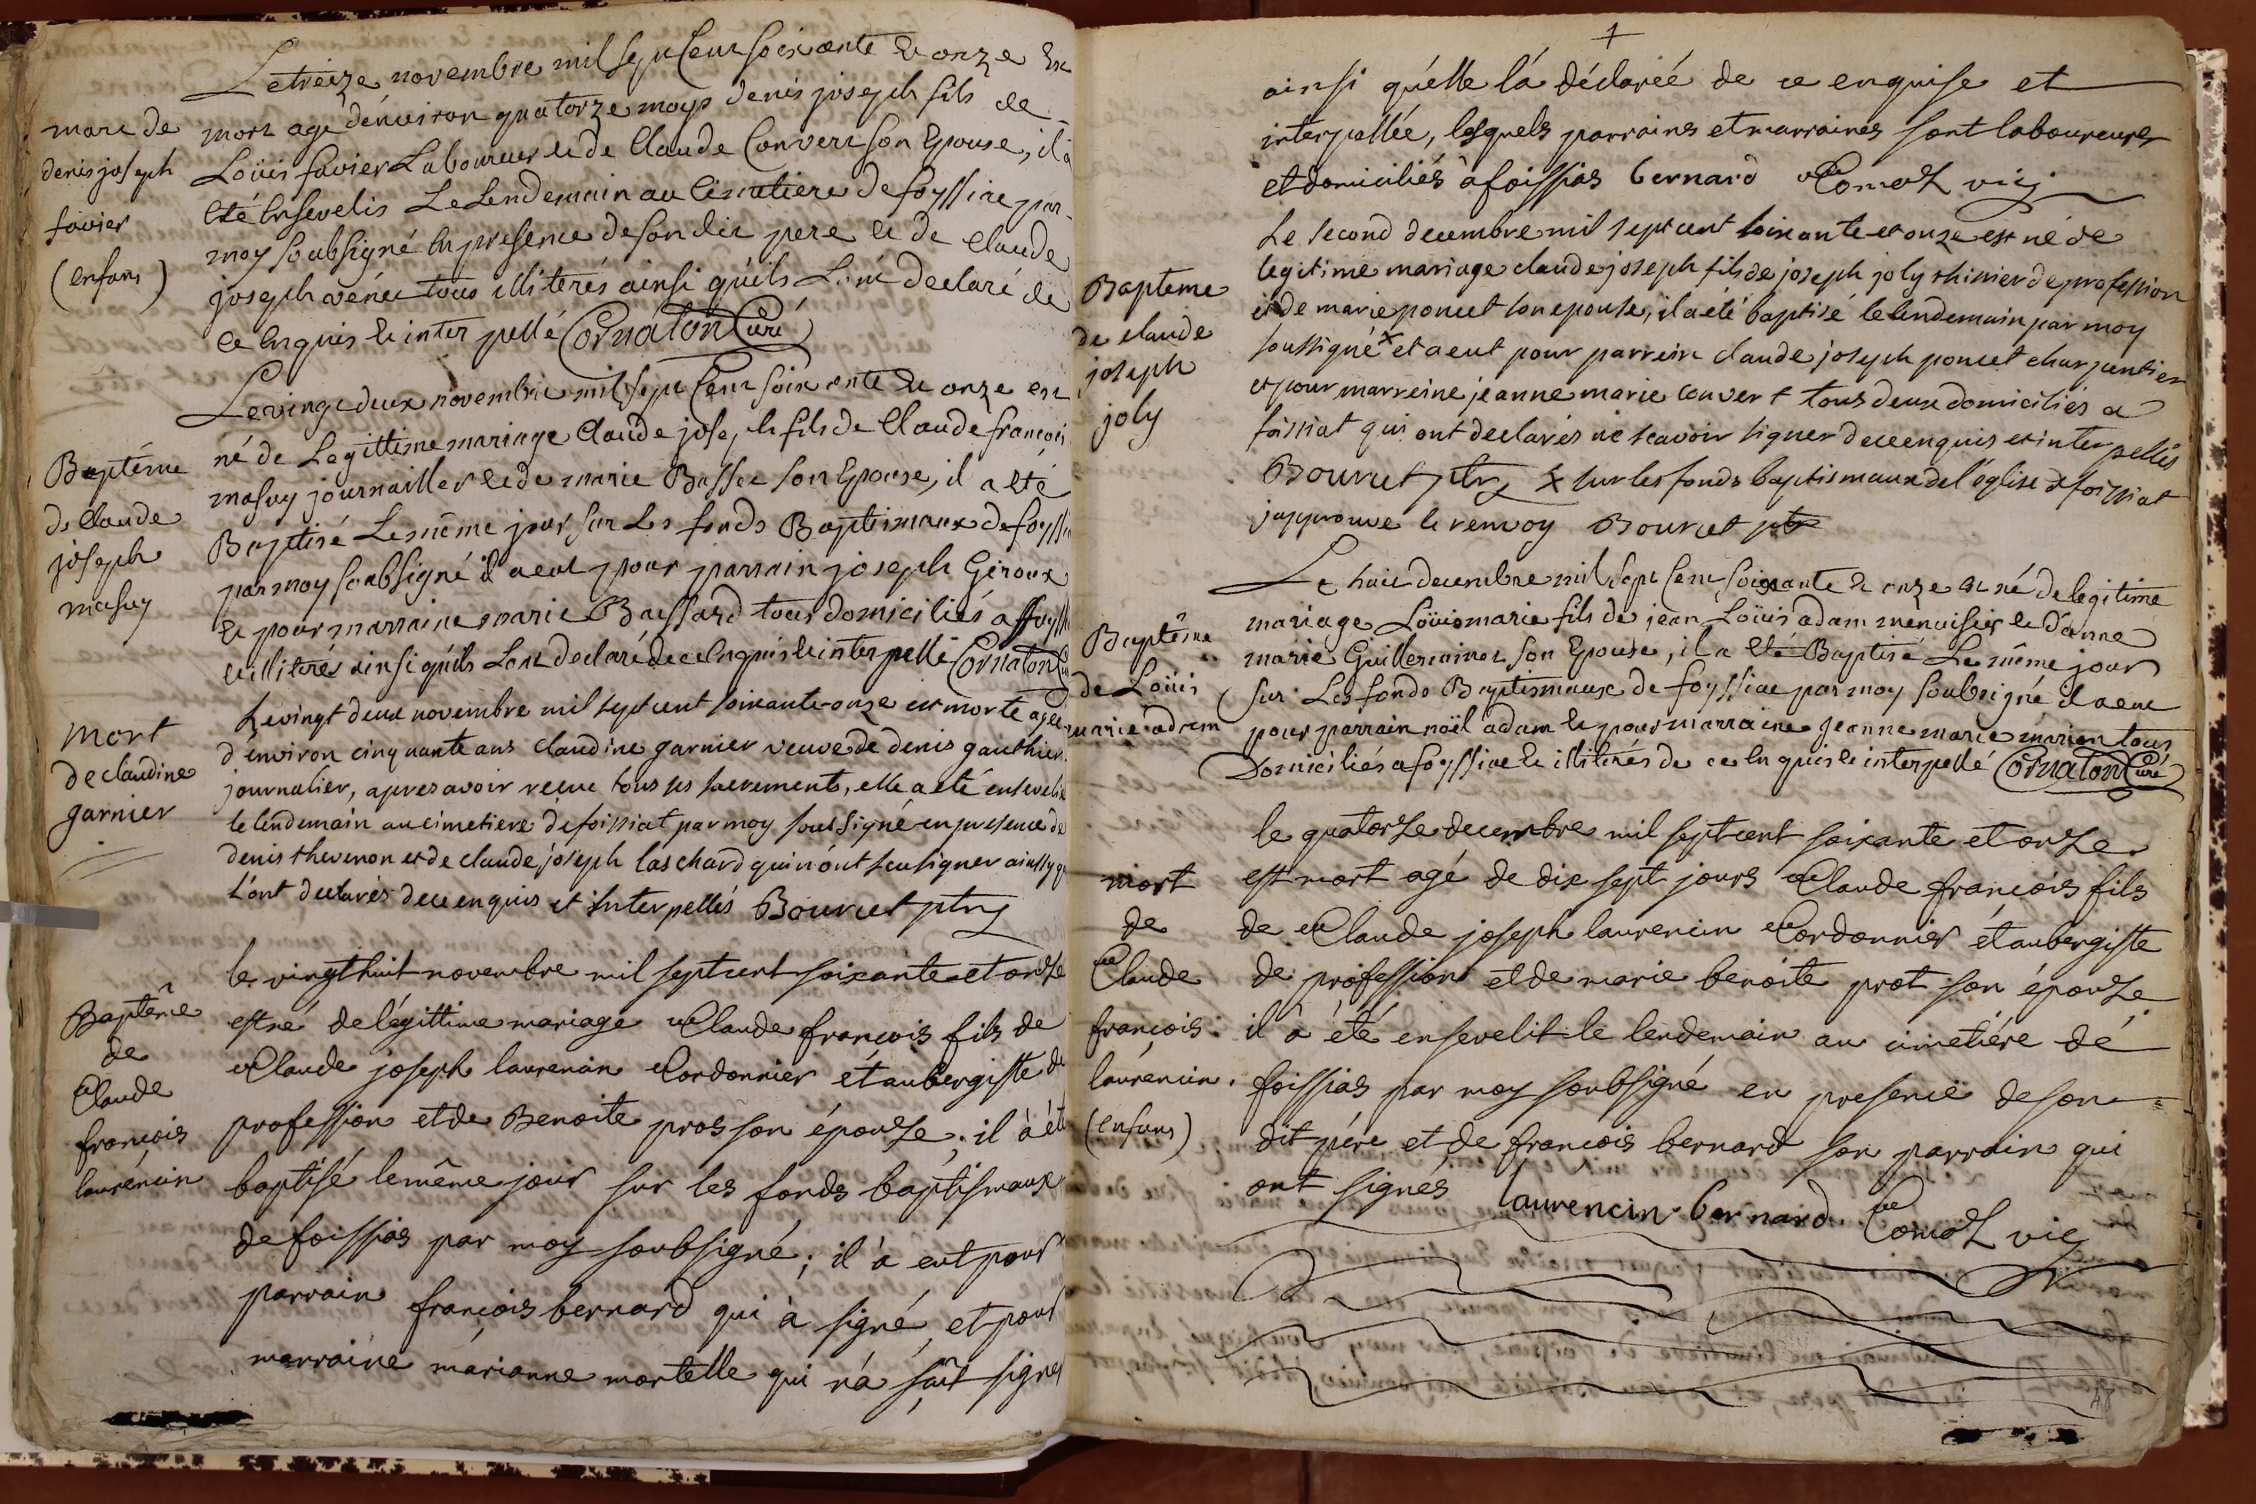 Le treize novembre mil sept cent soixante et onze est
mort agé d'environ quatorze moys denis joseph fils de
Loüis favier Laboureur et de Claude Convert son Epouse, il a
été Ensevelis Le Lendemain au Cimetiere de foyssiac par
moy soubsigné En presence de son dit pere et de Claude
joseph venet tous illiterés ainsi qu'ils L'ont declaré de
Ce Enquis et interpellé Cornaton Curé
mort de
denis joseph
favier
(enfans)
Le vingt deux novembre mil sept Cent soixante et onze est
né de Legittime mariage Claude joseph fils de Claude françois
masuy journaillier et de marie Bassee son Epouse, il a eté
Baptisé Le même jour sur Les fonds Baptismaux de foyssi
par moy soubsigné il a eut pour parrain joseph Giroux
et pour marraine marie Baissard tous domiciliés a foyssi
et illiterés ainsi qu'ils L'ont declaré de ce Enquis et interpellé Cornaton Cu
Baptême
de Claude
joseph
masuy
Le vingt deux novembre mil sept cent soixante-onze est morte agée
d'environ cinquante ans claudine garnier veuve de denis gauthier
journalier, apres avoir recue tous ses sacrements, elle a eté ensevelie
le lendemain au cimetiere de foissiat par moy soussigné en presence de
denis thevenon et de claude joseph laschard qui n'ont sçeu signer ainsy q
L'ont declarés de ce enquis et interpellés Bourcet ptre
mort
de claudine
garnier
le vingt huit novembre mil sept cent soixante et onze
est né de légittime mariage Claude françois fils de
Claude joseph laurencin Cordonnier et aubergiste de
profession et de Benoite pros son épouse; il à été
baptisé le même jour sur les fonds baptismaux
de foissias par moy soubsigné; il à eut pour
parrain françois bernard qui à signé, et pour
marraine marianne mortelle qui n'a sait signer
Baptême
de
Claude
françois
laurencin
1
ainsi qu'elle l'à déclareé de ce enquise et
interpellée, lesquels parrains et marraines sont laboureurs
et domiciliés à foissias bernard Comoz vic
Le second decembre mil sept cent soixante et onze est né de
legitime mariage claude joseph fils de joseph joly thissier de profession
et de marie poncet son epouse, il a été baptisé le lendemain par moy
soussigné x et a eut pour parrein claude joseph poncet charpentier
et pour marreine jeanne marie convert tous deux domiciliés a
foissiat qui ont declarés ne scavoir signer de ce enquis et interpellés
Bourcet ptre x sur les fonds baptismaux de l'église de foissiat
japprouve le renvoy Bourcet ptre
Bapteme
de claude
joseph
joly
Le huit decembre mil sept Cent soixante et onze est né de legitime
mariage Loüis marie fils de jean Loüis adam menuisier et d'anne
marie Guillerminet son Epouse, il a eté Baptisé Le même jour
sur Les fonds Baptismaux de foyssiac par moy soubsigné il a eut
pour parrain noël adam et pour marraine jeanne marie marion tous
Domiciliés a foyssiac et illiterés de ce Enquis et interpellé Cornaton Curé
Baptême
de Loüis
marie adam
le quatorze decembre mil sept cent soixante et onze
est mort agé de dix sept jours Claude françois fils
de Claude joseph laurencin Cordonnier et aubergiste
de profession et de marie benoite prot son épouze
il à été ensevelit le lendemain au cimetiére dé
foissias par moy soubsigné en presence de son
dit pére et de françois bernard son parrain qui
ont signés laurencin bernard Comoz vic
mort
de
Claude
françois
laurencin.
(enfans)
48